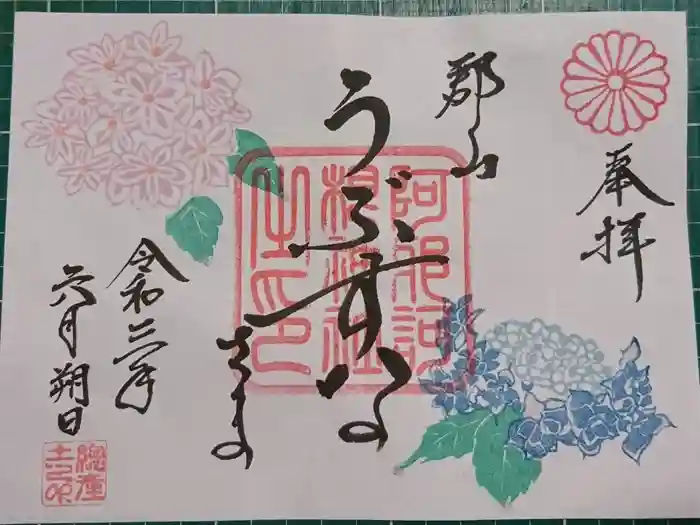 奉拝
郡山
うぶすな
さま
阿邪訶
根神社
之印
令和三年
六月朔日